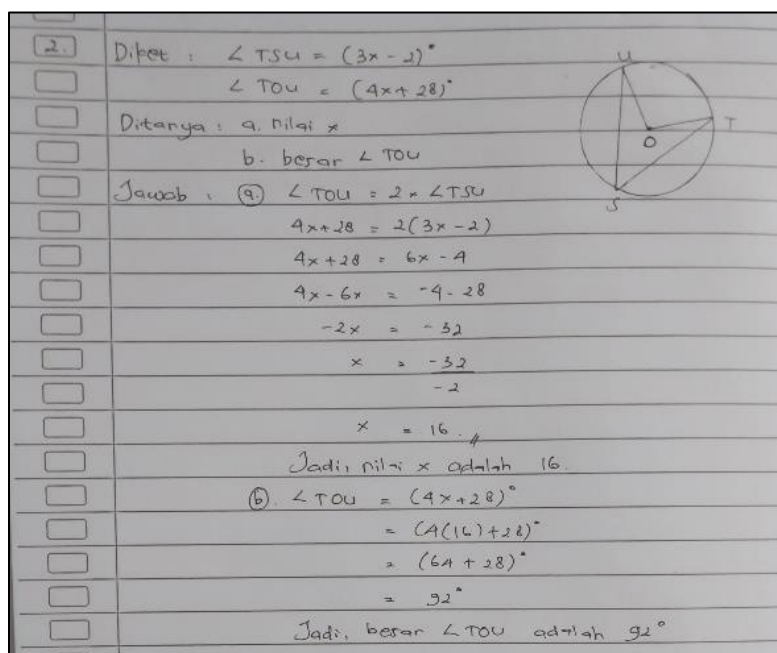 2. Diket : ∠ TSU = (3x - 2)°
∠ TOU = (4x + 28)°
Ditanya : a. nilai x
b. besar ∠ TOU
Jawab : (a) ∠ TOU = 2 × ∠TSU
4x + 28 = 2(3x - 2)
4x + 28 = 6x - 4
4x - 6x = -4 - 28
-2x = -32
x = -32
-2
x = 16 //
Jadi, nilai x adalah 16.
(b). ∠ TOU = (4x + 28)°
= (4(16) + 28)°
= (64 + 28)°
= 92°
Jadi, besar ∠ TOU adalah 92°
U
T
O
S